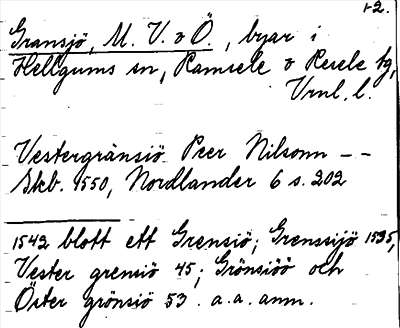 12.
Gransjö, M. V. o Ö., byar i
Hellgums sn, Ramsele o Resele tg,
Vrnl. l.
Vestergränsiö Peer Nilsonn – –
Skb. 1550, Nordlander 6 s. 202
1542 blott ett Grensiö; Grenssijö 1535,
Vester grensiö 45; Grönsiöö och
Öster grönsiö 53. a. a. anm.